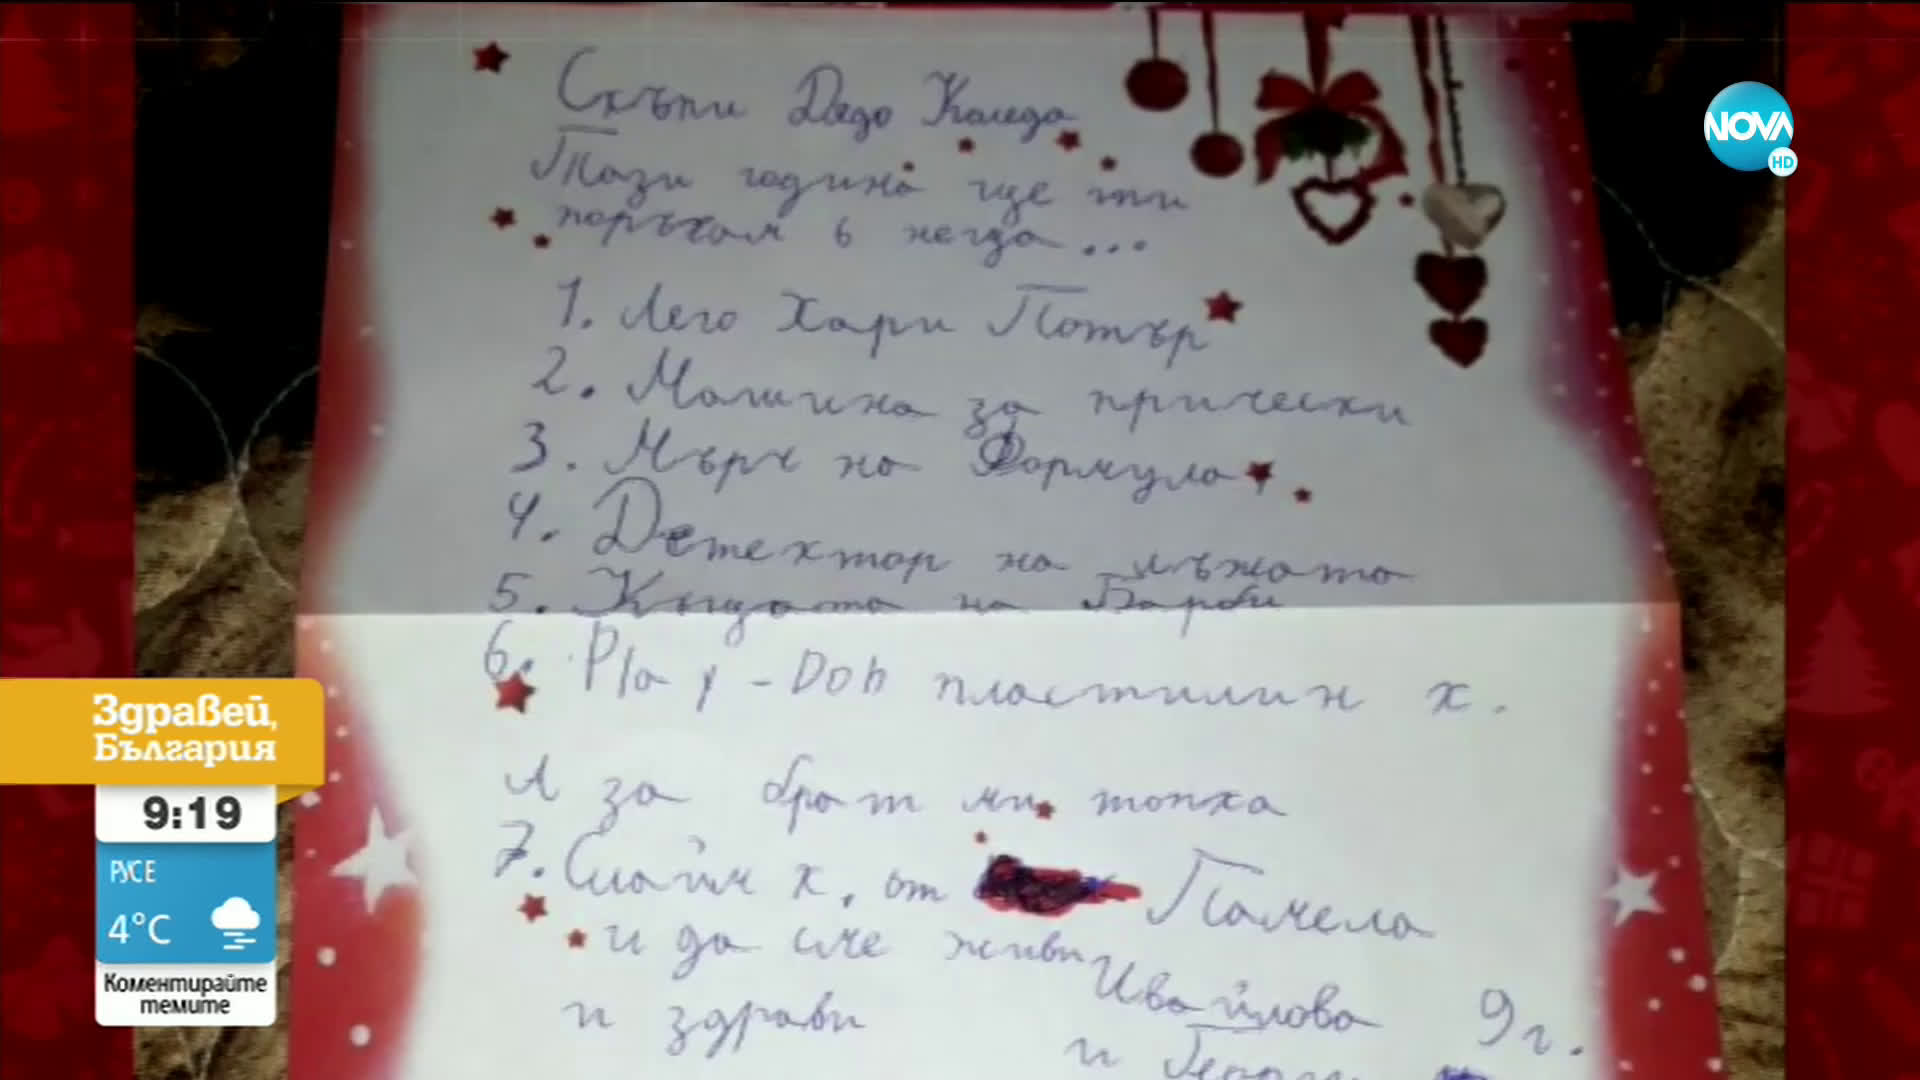 Скъпи Дядо Коледа
Тази година ще ти
поръчам 6 неща...
1. Лего Хари Потър
2. Машина за прически
3. Мърч на Формула 1
4. Детектор на лъжата
5. Къщата на Барби
6. Play-Doh пластилин х.
А за брат ми топка
7. Слайм х. от Памела
и да сме живи Ивайлова 9г.
и здрави
и
NOVA
HD
Здравей,
България
9:19
РУСЕ
4°C
Коментирайте
темите